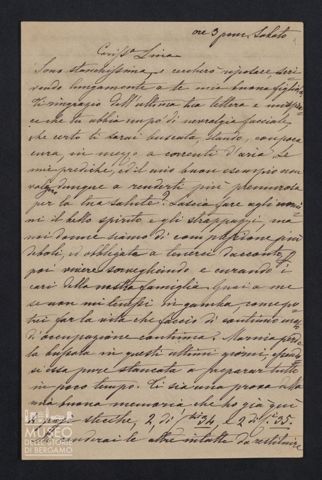 ore 3 pom. Sabato
Cariss.a Lina
Sono stanchissima, e cercherò riposare scri-
vendo lungamente a te mia buona figliola.
Ti ringrazio dell'ultima tua lettera e mi spia-
ce che tu abbia un pò di nevralgia facciale
che certo ti sarai buscata, stando, con poca
cura, in mezzo a correnti d'aria. Le
mie prediche, ed il mio buon esempio non
valgono dunque a renderti più premurosa
per la tua salute? Lascia fare agli uomi-
ni il bello spirito e gli strappazzi, ma
noi donne siamo di complessione più
deboli, e obbligate a tenerci da conto
poi vivere sorvegliando e curando i
cari della nostra famiglia. Guai a me
se non mi tenessi in gamba come po-
trei far la vita che faccio di continuo
di occupazione continua. Mammia
la bussola in questi ultimi giorni,
si essa pure stancata a preparar tutto
in poco tempo. Ti sia una prova della
mia buona memoria che ho già qui
stecche, 2 di 34, e 2 di 35.
renderai le altre intatte da restituire
MUSEO
DELLE STORIE
DI BERGAMO